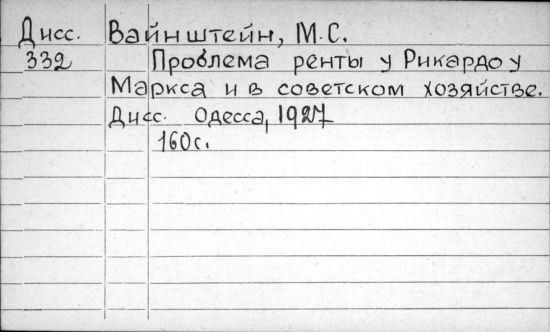 Дисс. Вайнштейн, М.С.
332 Проблема ренты у Рикардо у
Маркса и в советском хозяйстве.
Дисс. Одесса, 1927
160с.